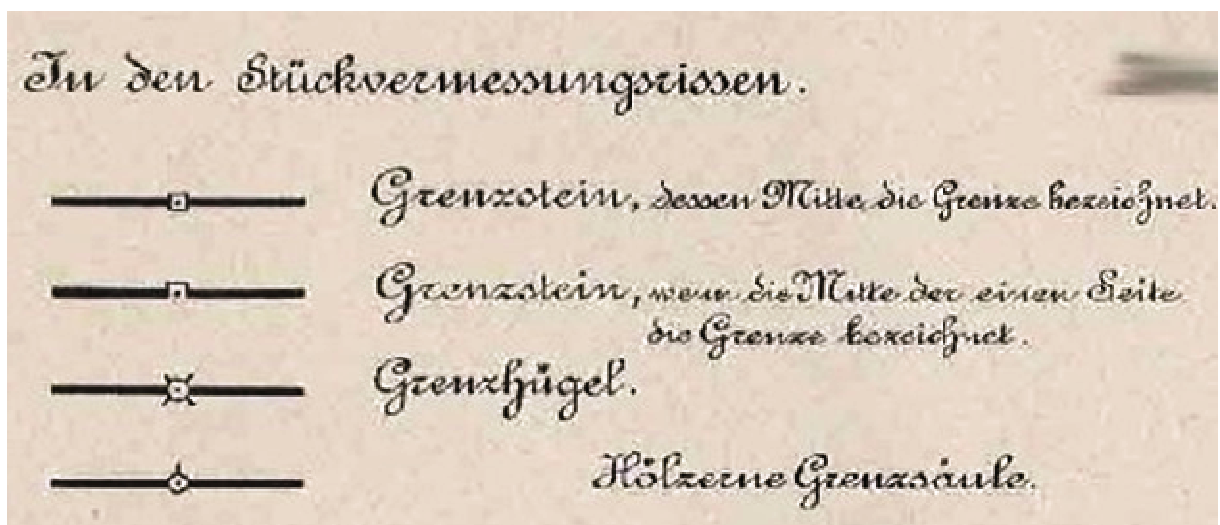 In den Stückvermessungsrissen.
Grenzstein, dessen Mitte die Grenze bezeichnet.
Grenzstein, wenn die Mitte der einen Seite
die Grenze bezeichnet.
Grenzhügel.
Hölzerne Grenzsäule.